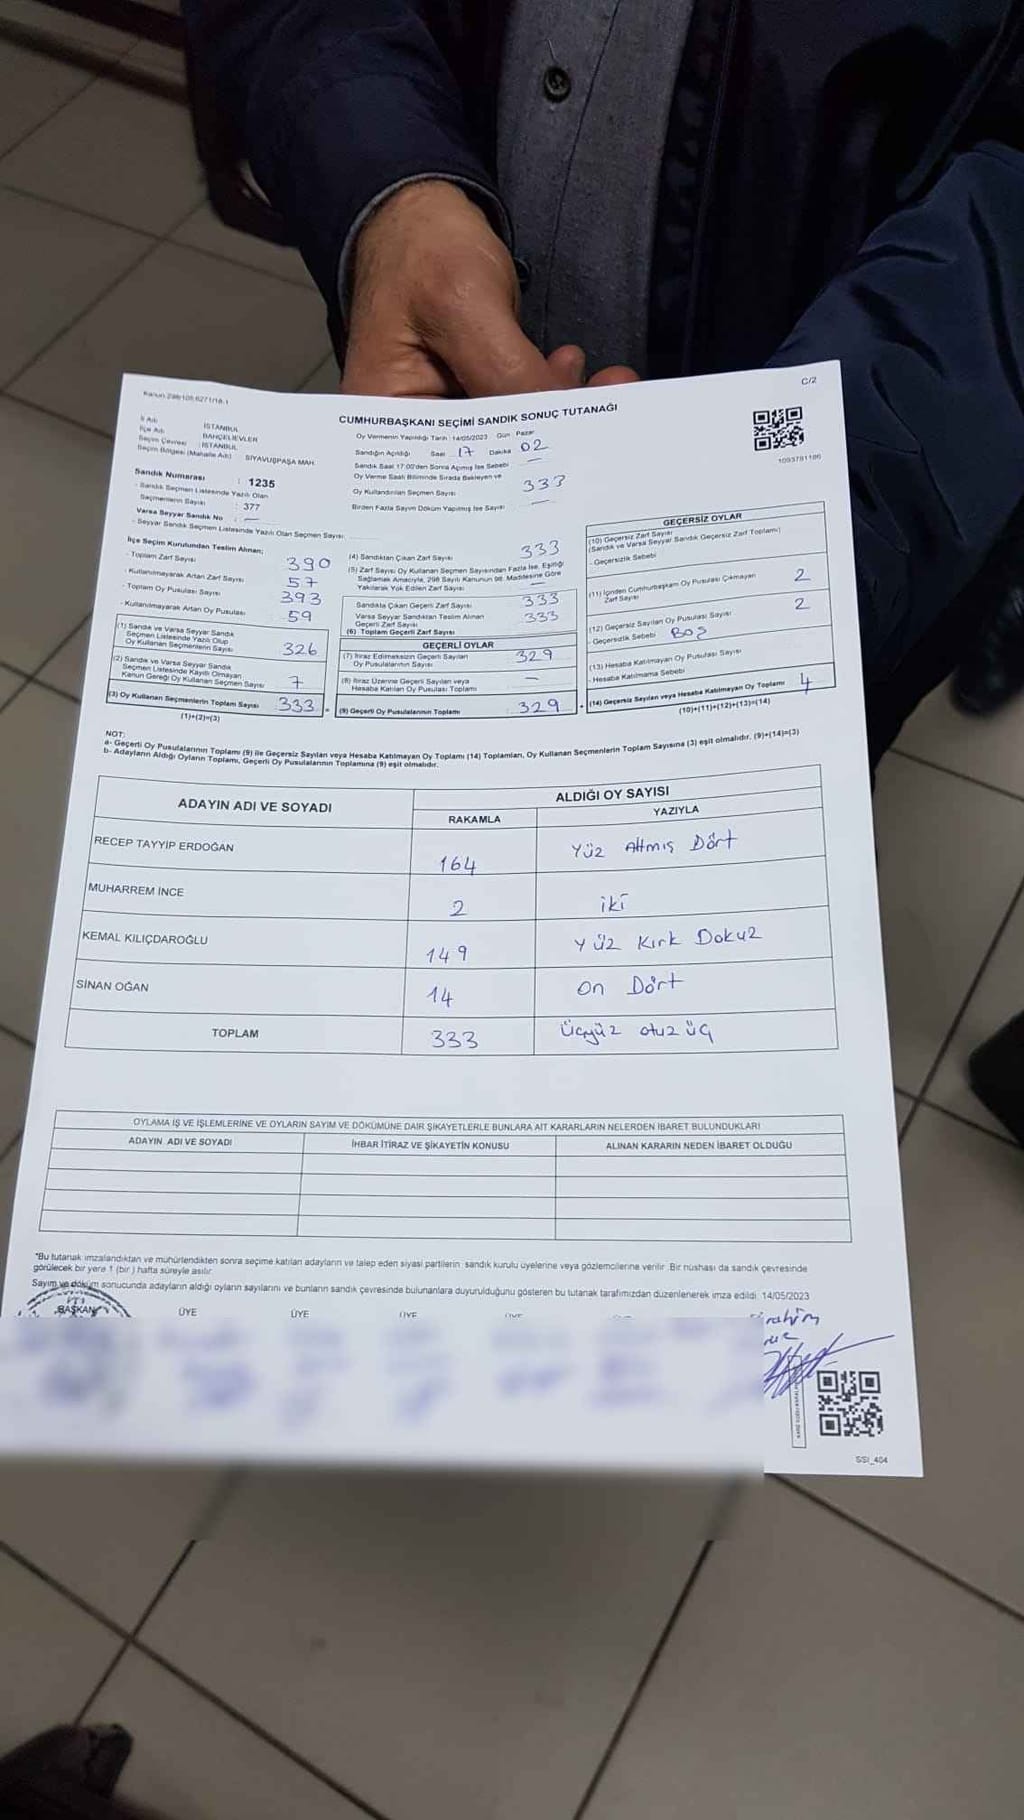 Kanun 298/105,6271/18-1
C/2
CUMHURBAŞKANI SEÇİMİ SANDIK SONUÇ TUTANAĞI
İl Adı : İSTANBUL
İlçe Adı : BAHÇELİEVLER
Seçim Çevresi : İSTANBUL
Seçim Bölgesi (Mahalle Adı) : SİYAVUŞPAŞA MAH.
Sandık Numarası : 1235
- Sandık Seçmen Listesinde Yazılı Olan
Seçmenlerin Sayısı : 377
Varsa Seyyar Sandık No : —
- Seyyar Sandık Seçmen Listesinde Yazılı Olan Seçmen Sayısı:
Oy Vermenin Yapıldığı Tarih :14/05/2023 Gün : Pazar
Sandığın Açıldığı Saat 17 Dakika 02
Sandık Saat 17:00'den Sonra Açılmış İse Sebebi —
Oy Verme Saati Bitiminde Sırada Bekleyen ve
Oy Kullandırılan Seçmen Sayısı 333
Birden Fazla Sayım Döküm Yapılmış İse Sayısı —
1093781186
İlçe Seçim Kurulundan Teslim Alınan;
- Toplam Zarf Sayısı 390
- Kullanılmayarak Artan Zarf Sayısı 57
- Toplam Oy Pusulası Sayısı 393
- Kullanılmayarak Artan Oy Pusulası 59
(1) Sandık ve Varsa Seyyar Sandık
Seçmen Listesinde Yazılı Olup
Oy Kullanan Seçmenlerin Sayısı 326
(2) Sandık ve Varsa Seyyar Sandık
Seçmen Listesinde Kayıtlı Olmayan
Kanun Gereği Oy Kullanan Seçmen Sayısı 7
(3) Oy Kullanan Seçmenlerin Toplam Sayısı 333
(1)+(2)=(3)
(4) Sandıktan Çıkan Zarf Sayısı 333
(5) Zarf Sayısı Oy Kullanan Seçmen Sayısından Fazla İse, Eşitliği
Sağlamak Amacıyla, 298 Sayılı Kanunun 98. Maddesine Göre
Yakılarak Yok Edilen Zarf Sayısı —
Sandıkta Çıkan Geçerli Zarf Sayısı 333
Varsa Seyyar Sandıktan Teslim Alınan
Geçerli Zarf Sayısı 333
(6) Toplam Geçerli Zarf Sayısı
GEÇERLİ OYLAR
(7) İtiraz Edilmeksizin Geçerli Sayılan
Oy Pusulalarının Sayısı 329
(8) İtiraz Üzerine Geçerli Sayılan veya
Hesaba Katılan Oy Pusulası Toplamı —
(9) Geçerli Oy Pusulalarının Toplamı 329
GEÇERSİZ OYLAR
(10) Geçersiz Zarf Sayısı
(Sandık ve Varsa Seyyar Sandık Geçersiz Zarf Toplamı)
- Geçersizlik Sebebi
(11) İçinden Cumhurbaşkanı Oy Pusulası Çıkmayan
Zarf Sayısı 2
(12) Geçersiz Sayılan Oy Pusulası Sayısı 2
- Geçersizlik Sebebi BOŞ
(13) Hesaba Katılmayan Oy Pusulası Sayısı
- Hesaba Katılmama Sebebi
(14) Geçersiz Sayılan veya Hesaba Katılmayan Oy Toplamı 4
(10)+(11)+(12)+(13)=(14)
NOT:
a- Geçerli Oy Pusulalarının Toplamı (9) ile Geçersiz Sayılan veya Hesaba Katılmayan Oy Toplamı (14) Toplamları, Oy Kullanan Seçmenlerin Toplam Sayısına (3) eşit olmalıdır. (9)+(14)=(3)
b- Adayların Aldığı Oyların Toplamı, Geçerli Oy Pusulalarının Toplamına (9) eşit olmalıdır.
ADAYIN ADI VE SOYADI
ALDIĞI OY SAYISI
RAKAMLA YAZIYLA
RECEP TAYYİP ERDOĞAN 164 Yüz Altmış Dört
MUHARREM İNCE 2 iki
KEMAL KILIÇDAROĞLU 149 Yüz Kırk Dokuz
SİNAN OĞAN 14 On Dört
TOPLAM 333 Üçyüz otuz üç
OYLAMA İŞ VE İŞLEMLERİNE VE OYLARIN SAYIM VE DÖKÜMÜNE DAİR ŞİKAYETLERLE BUNLARA AİT KARARLARIN NELERDEN İBARET BULUNDUKLARI
ADAYIN ADI VE SOYADI İHBAR İTİRAZ VE ŞİKAYETİN KONUSU ALINAN KARARIN NEDEN İBARET OLDUĞU
*Bu tutanak imzalandıktan ve mühürlendikten sonra seçime katılan adayların ve talep eden siyasi partilerin sandık kurulu üyelerine veya gözlemcilerine verilir. Bir nüshası da sandık çevresinde
görülecek bir yere 1 (bir ) hafta süreyle asılır.
Sayım ve döküm sonucunda adayların aldığı oyların sayılarını ve bunların sandık çevresinde bulunanlara duyurulduğunu gösteren bu tutanak tarafımızdan düzenlenerek imza edildi. 14/05/2023
BAŞKAN ÜYE ÜYE ÜYE ÜYE
SSI_404